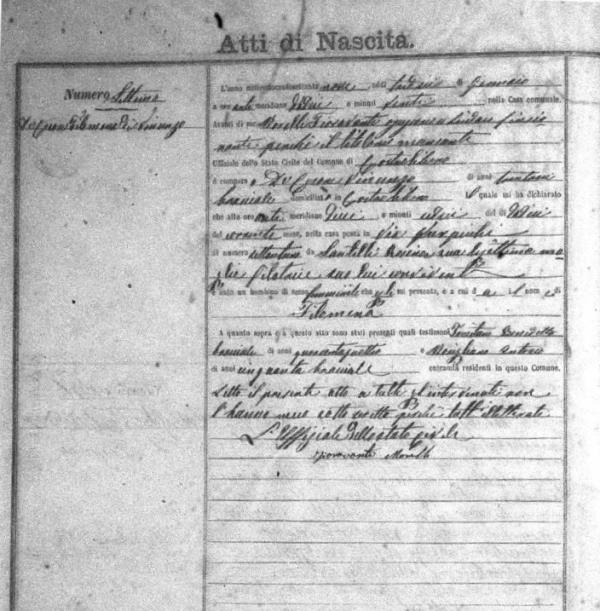 Atti di Nascita.
Numero Settimo
De Filomena di Vincenzo
L'anno milleottocentottanta nove addì tredici di Gennaio
a ore anti meridiane dieci e minuti venti nella Casa comunale.
Avanti di me Morelli Fioravante
nante perchè il titolare mancante
Uffiziale dello Stato Civile del Comune di
è comparso De Vincenzo di anni trentasei
bracciale domiciliato in quale mi ha dichiarato
che alle ore anti meridiane dieci e minuti dieci del dì dodici
del corrente mese, nella casa posta in Via
al numero settantuno da Santilli sua legittima mo-
glie filatrice seco lui convivente
è nato un bambino di sesso femminile che egli mi presenta, e a cui dà il nome di
Filomena
A quanto sopra e a questo atto sono stati presenti quali testimoni Benedetto
bracciale di anni quarantaquattro e Antonio
di anni cinquanta bracciale entrambi residenti in questo Comune.
Letto il presente atto a tutti gl'intervenuti non
l'hanno meco sottoscritto perchè tutti illetterati
L'Uffiziale dello Stato Civile
Fioravante Morelli